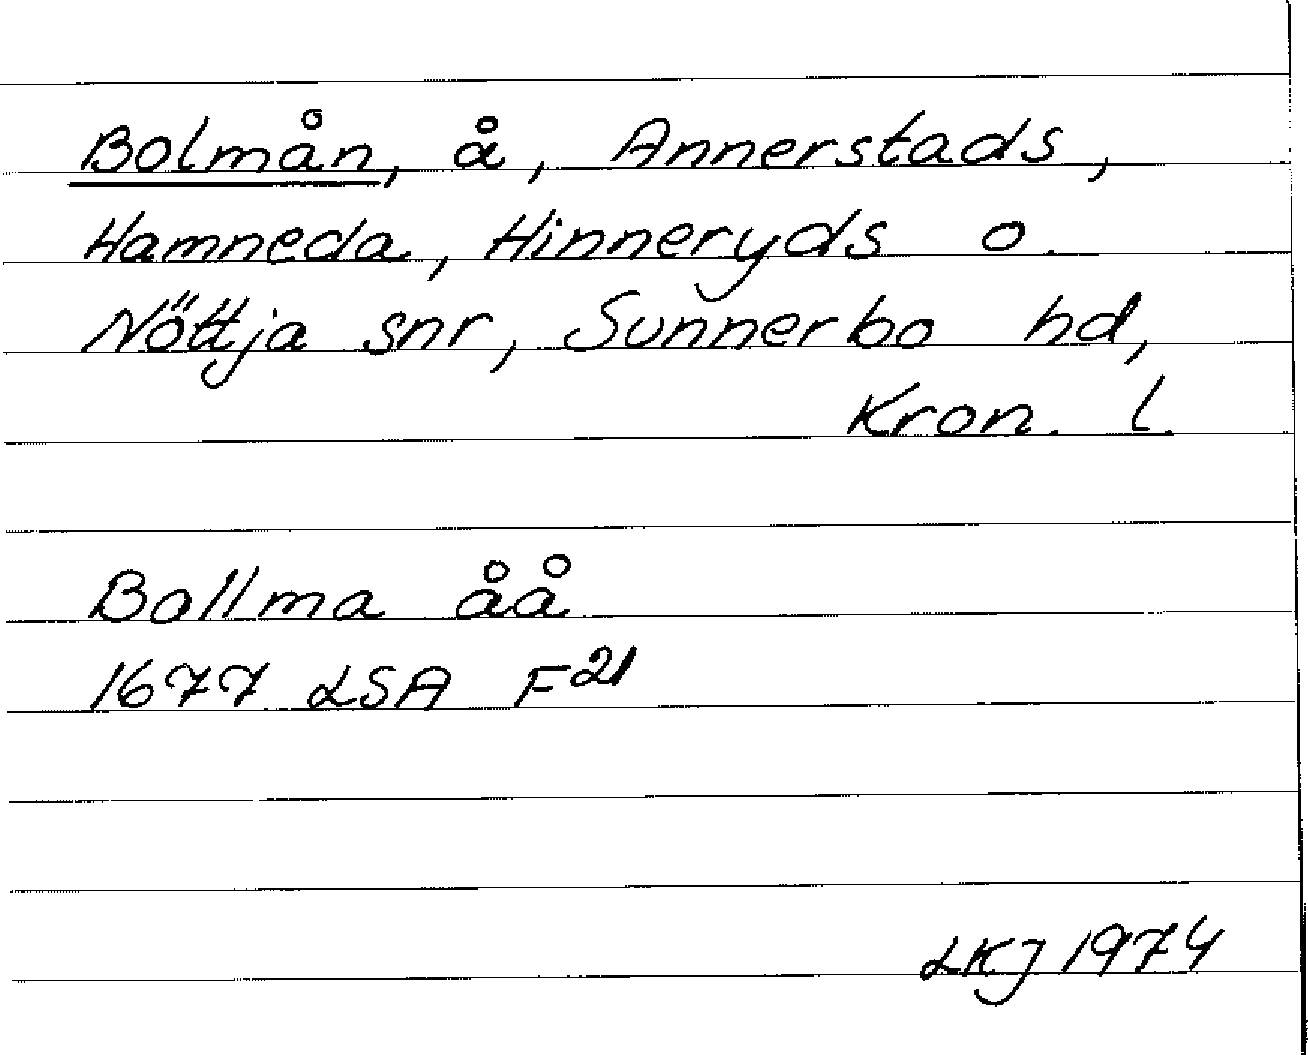 Bolmån, å, Annerstads,
Hamneda, Hinneryds o.
Nöttja snr, Sunnerbo hd,
Kron. l.
Bollma åå
1677 LSA F21
LKJ 1974